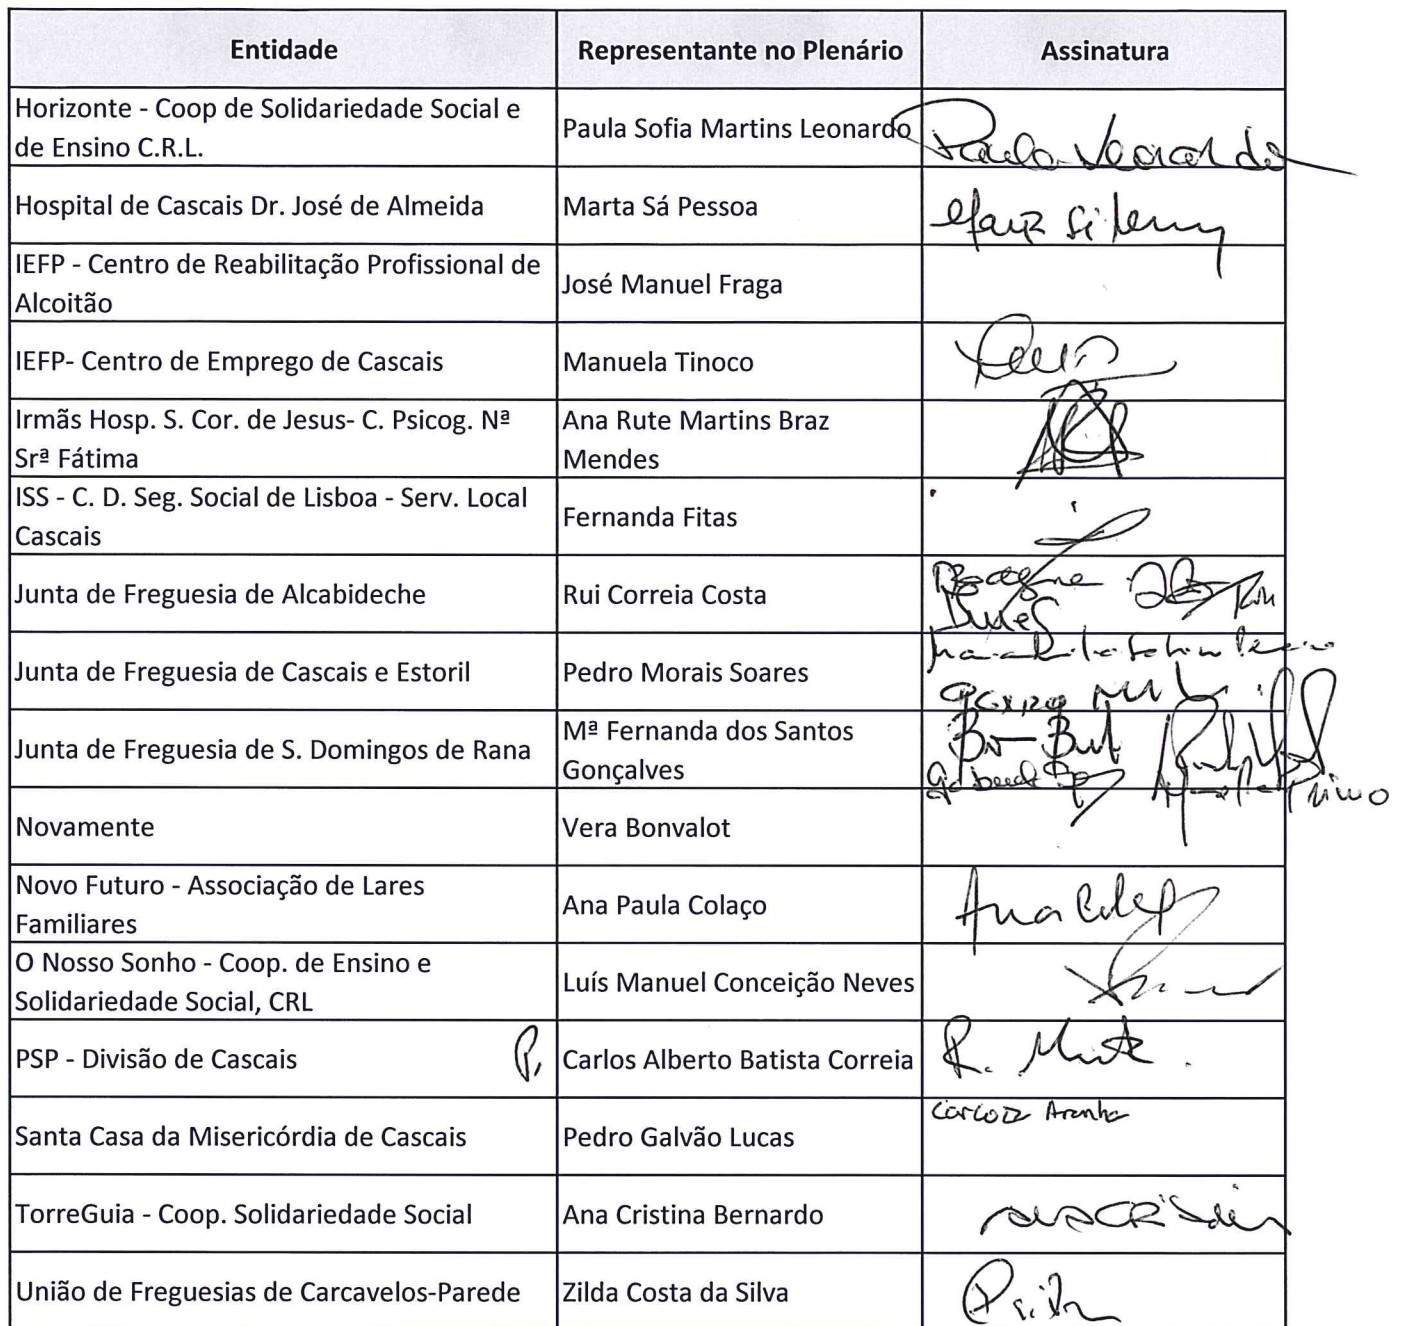 Entidade Representante no Plenário Assinatura
Horizonte - Coop de Solidariedade Social e
de Ensino C.R.L.
Paula Sofia Martins Leonardo
Hospital de Cascais Dr. José de Almeida Marta Sá Pessoa
IEFP - Centro de Reabilitação Profissional de
Alcoitão
José Manuel Fraga
IEFP- Centro de Emprego de Cascais Manuela Tinoco
Irmãs Hosp. S. Cor. de Jesus- C. Psicog. Nª
Srª Fátima
Ana Rute Martins Braz
Mendes
ISS - C. D. Seg. Social de Lisboa - Serv. Local
Cascais
Fernanda Fitas
Junta de Freguesia de Alcabideche Rui Correia Costa
Junta de Freguesia de Cascais e Estoril Pedro Morais Soares
Junta de Freguesia de S. Domingos de Rana
Mª Fernanda dos Santos
Gonçalves
Novamente Vera Bonvalot
Novo Futuro - Associação de Lares
Familiares
Ana Paula Colaço Ana
O Nosso Sonho - Coop. de Ensino e
Solidariedade Social, CRL
Luís Manuel Conceição Neves
PSP - Divisão de Cascais P. Carlos Alberto Batista Correia R.
Santa Casa da Misericórdia de Cascais Pedro Galvão Lucas Aranha
TorreGuia - Coop. Solidariedade Social Ana Cristina Bernardo
União de Freguesias de Carcavelos-Parede Zilda Costa da Silva